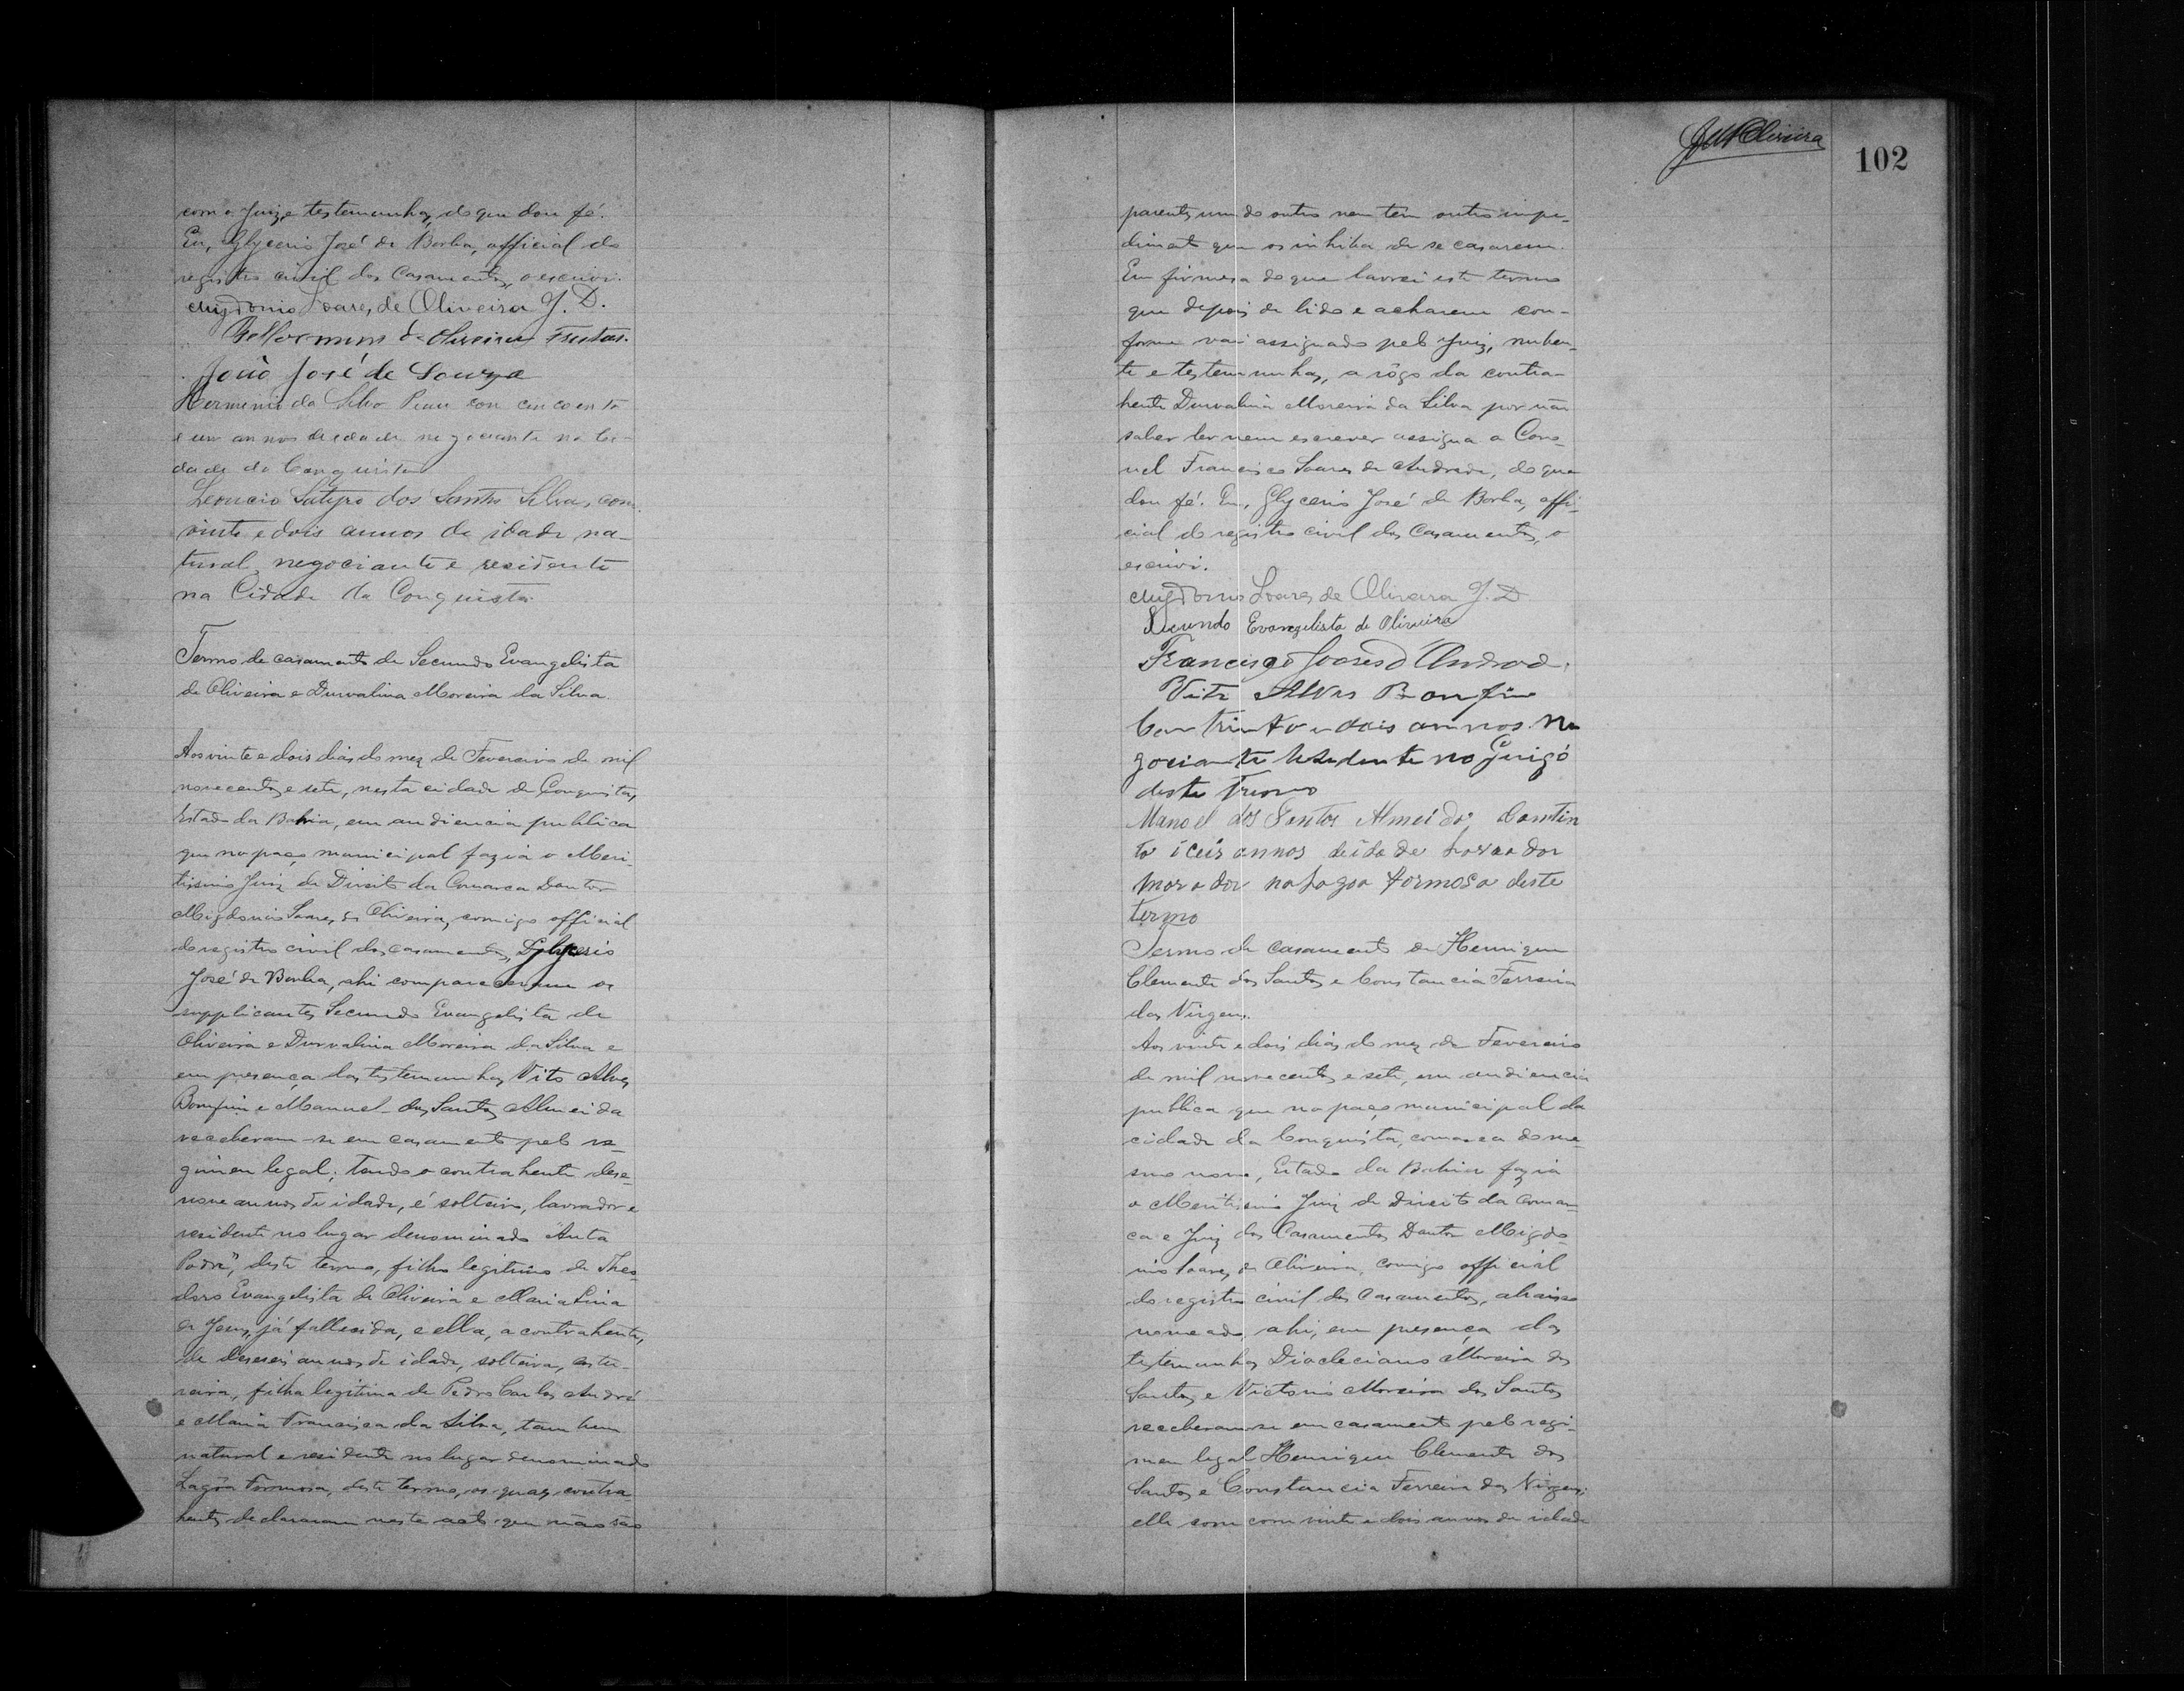 com o Juiz e testemunhas, do que dou fé.
Eu, Glycerio José de Borba, official do
registro civil dos Casamentos, o escrevi.
Migdonio Soares de Oliveira J. D.
de Oliveira Freitas.
João José de Souza
Herminio da Silva Piau con cincoenta
e um annos de edade negociante na Ci-
dade da Conquista
Leoncio Satyro dos Santos Silva, com
vinte e dois annos de idade na-
tural, negociante e residente
na Cidade da Conquista.
Termo de casamento de Secundo Evangelista
de Oliveira e Durvalina Moreira da Silva.
Aos vinte e dois dias do mez de Fevereiro de mil
novecentos e sete, nesta cidade de Conquista,
Estado da Bahia, em audiencia publica
que no paço municipal fazia o Meri-
tissimo Juiz de Direito da Comarca Doutor
Migdonio Soares de Oliveira, comigo official
do registro civil dos casamentos, Glycerio
José de Borba, ahi compareceram os
supplicantes Secundo Evangelista de
Oliveira e Durvalina Moreira da Silva e
em presença das testemunhas Vito Alves
Bomfim e Manuel dos Santos Almeida
receberam-se em casamento pelo re-
gimen legal; tendo o contrahente dese-
nove annos de idade, é solteiro, lavrador e
residente no lugar denominado Anta
Podre", deste termo, filho legitimo de Theo-
doro Evangelista de Oliveira e Maria Lina
de Jesus, já fallecida, e ella, a contrahente,
de deseseis annos de idade, solteira, costu-
reira, filha legitima de Pedro Carlos André
e Maria Francisca da Silva, tambem
natural e residente no lugar denominado
Lagôa Formosa, deste termo, os quaes contra-
hentes declararam neste acto que não são
102
parentes um do outro nem tem outro impe-
dimento que os inhiba de se casarem.
Em firmesa do que lavrei este termo
que depois de lido e acharem con-
forme vai assignado pelo Juiz, nuben-
te e testemunhas, a rôgo da contra-
hente Durvalina Moreira da Silva por não
saber ler nem escrever assigna o Coro-
nel Francisco Soares de Andrade, do que
dou fé. Eu, Glycerio José de Borba, offi-
cial do registro civil dos Casamentos, o
escrevi.
Migdonio Soares de Oliveira J. D.
Secundo Evangelista de Oliveira
Francisco Soares d'Andrade.
Vito Alves Bonfim
Com trinta e dois annos ne
gociante residente no Gurigó
deste Tremo
Manoel dos Santos Almeida, Comtin
ta i ceis annos de idade lavrador
morador na Lagoa Formosa deste
termo
Termo de casamento de Henrique
Clemente dos Santos e Constancia Ferreira
das Virgens.
Aos vinte e dois dias do mez de Fevereiro
de mil novecentos e sete, em audiencia
publica que no paço municipal da
cidade da Conquista, comarca do me-
smo nome, Estado da Bahia fazia
o Meritissimo Juiz de Direito da Comar-
ca e Juiz dos Casamentos Doutor Migdo-
nio Soares de Oliveira, comigo official
do registro civil dos Casamentos, abaixo
nomeado, ahi, em presença das
testemunhas Diocleciano Moreira dos
Santos e Victorio Moreira dos Santos
receberam-se em casamento pelo regi-
men legal Henrique Clemente dos
Santos e Constancia Ferreira das Virgens;
elle com com vinte e dois annos de idade